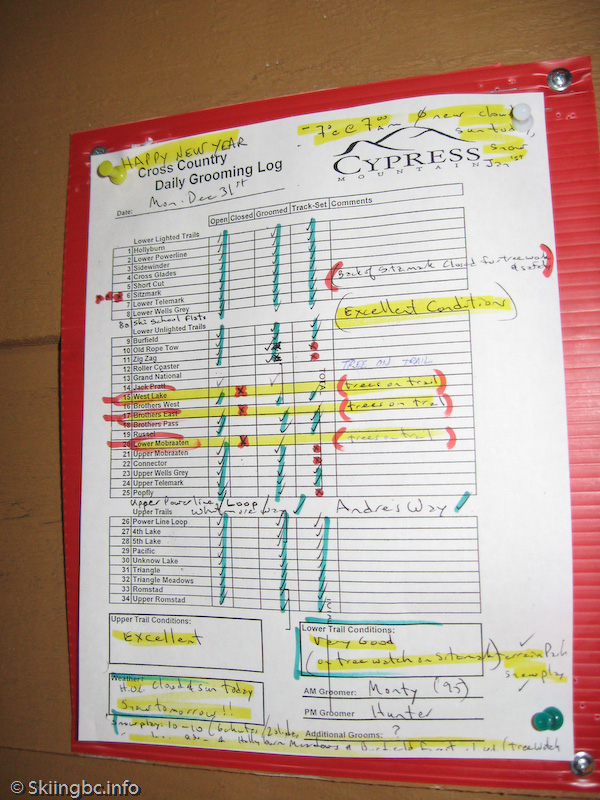 -7°c @ 7:00 AM Ø new cloud
sun today,
snow
Jan 1st
HAPPY NEW YEAR
Cross Country
Daily Grooming Log
CYPRESS
MOUNTAIN
Date: Mon. Dec 31st
Open Closed Groomed Track-Set Comments
Lower Lighted Trails
1 Hollyburn
2 Lower Powerline
3 Sidewinder
4 Cross Glades
5 Short Cut (Back of Sitzmark Closed for tree work
6 Sitzmark
7 Lower Telemark
8 Lower Wells Grey
(Excellent Conditions)
Ski School Flats
Lower Unlighted Trails
9 Burfield
10 Old Rope Tow
11 Zig Zag
12 Roller Coaster TREE ON TRAIL
13 Grand National
14 Jack Pratt (trees on trail)
15 West Lake
16 Brothers West (trees on trail)
17 Brothers East
18 Brothers Pass
19 Russel (trees on trail)
20 Lower Mobraaten
21 Upper Mobraaten
22 Connector
23 Upper Wells Grey
24 Upper Telemark
25 Popfly
Upper Powerline/Loop
Upper Trails Whatmore Way ✓ Andres Way ✓
26 Power Line Loop
27 4th Lake
28 5th Lake
29 Pacific
30 Unknow Lake
31 Triangle
32 Triangle Meadows
33 Romstad
34 Upper Romstad
Upper Trail Conditions:
Excellent
Lower Trail Conditions:
Very Good
(on tree watch on Sitzmark)
terrain Park
snowplay
Weather:
Cloud & sun today
Snow tomorrow!!
AM Groomer: Monty (95)
PM Groomer Hunter
Additional Grooms: ?
Snowplay: 10-10
Hollyburn Meadows
© Skiingbc.info